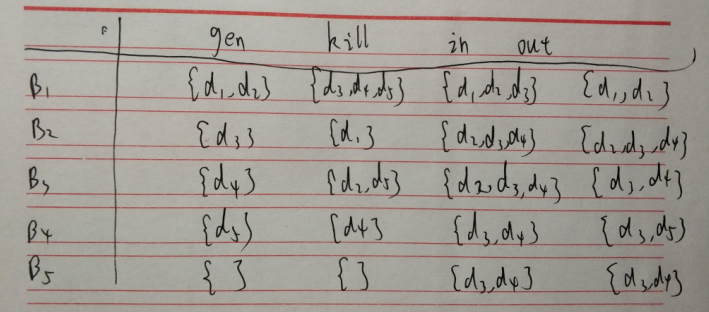 gen kill in out
B1 {d1,d2} {d3,d4,d5} {d1,d2,d3} {d1,d2}
B2 {d3} {d1} {d2,d3,d4} {d2,d3,d4}
B3 {d4} {d2,d5} {d2,d3,d4} {d3,d4}
B4 {d5} {d4} {d3,d4} {d3,d5}
B5 { } { } {d3,d4} {d3,d4}